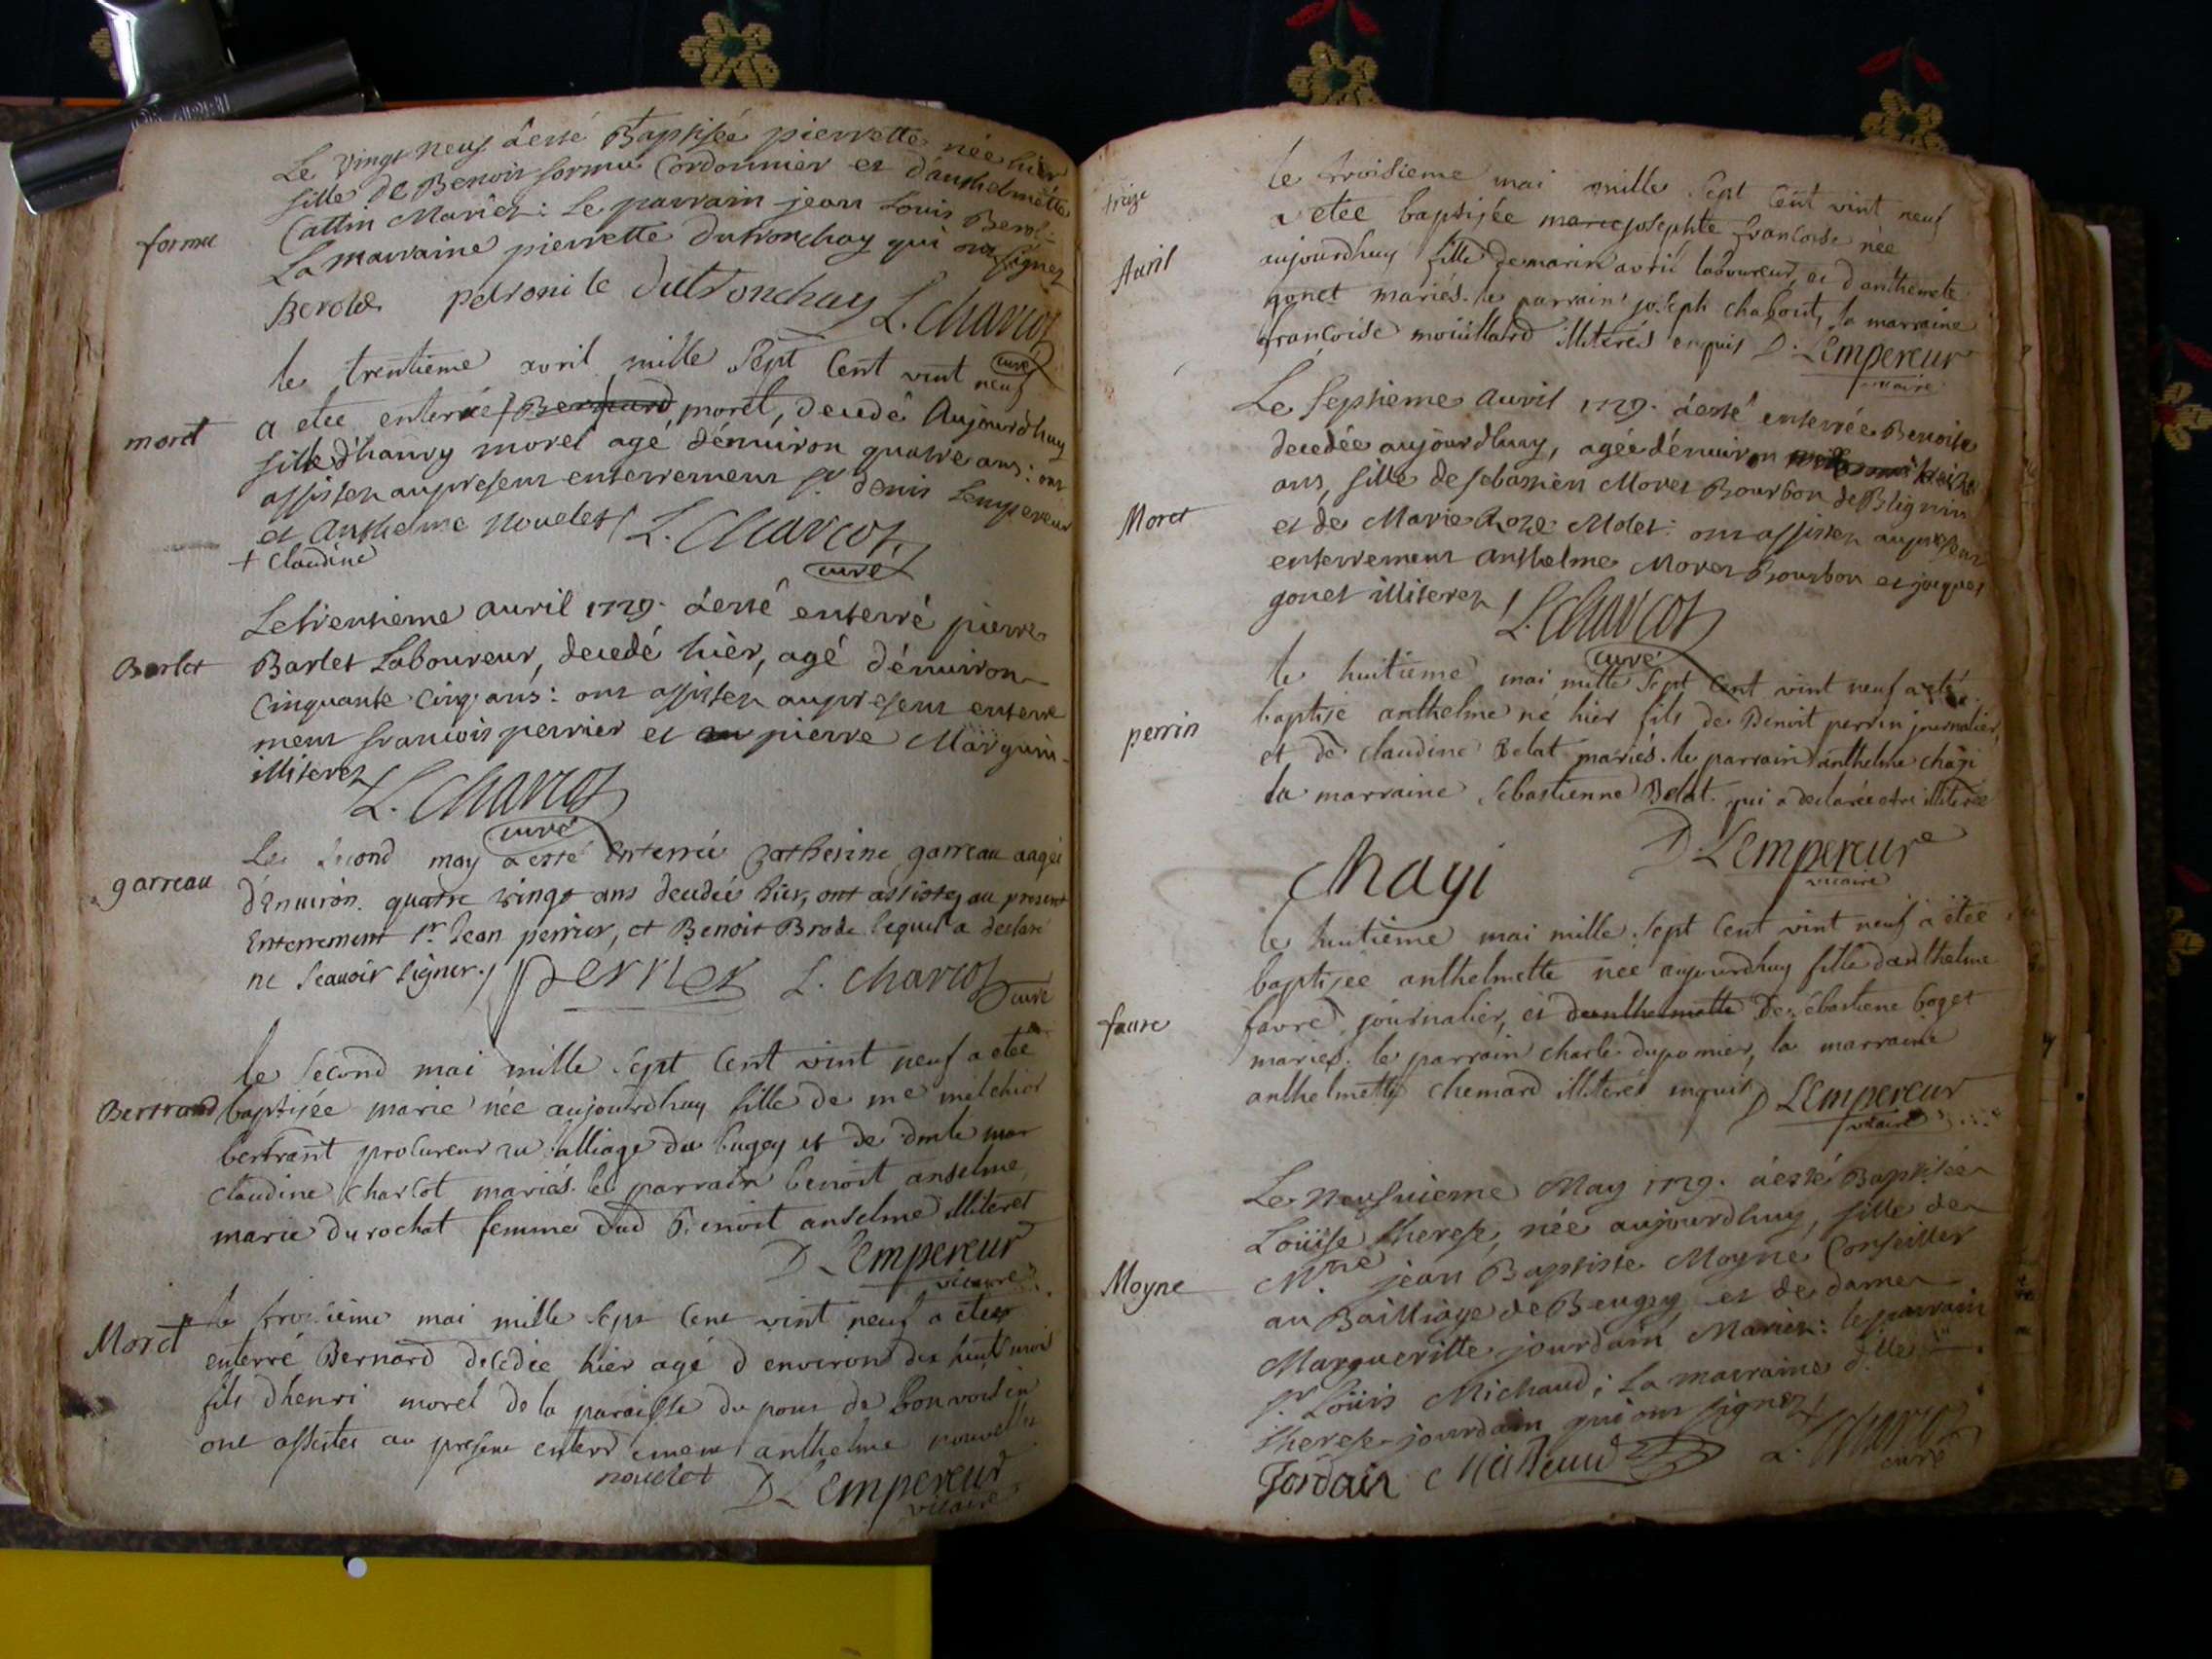 Le vingt neuf a esté Baptisée pierrette née hier
fille de Benoit formu Cordonnier et d'anthelmette
formu
Cattin Mariez: Le parrain jean Louis Berod:
La marraine pierrette dutronchay qui ont signez
Berode petronile dutronchay L. Charcot
curé
le trentieme avril mille sept cent vint neuf
morel
a etee enterrée + Bernard morel, decedé Aujourdhuy
fille d'hanry morel agé d'énuiron quatre ans: ont
assistez au present enterrement sr. denis Lempereur
et Anthelme Nouelet / L. Charcot
+ Claudine
curé
Le trentieme auril 1729. a esté enterré pierre
Barlet
Barlet Laboureur, decedé hièr, agé d'énuiron
cinquante cinq ans: ont assistez au present enterre
ment francois perrier et pierre Marguin
illiterez L. Charcot
curé
Le second may a esté Enterrée Catherine garreau aagée
garreau
d'Enuiron quatre vingt ans decedée hier, ont assistez au present
Enterrement sr. Jean perrier, et Benoit Brode lequel a declaré
ne scauoir signer. / perrier L. Charcot curé
le second mai mille sept cent vint neuf a etée
Bertrand
baptisée marie née aujourdhuy fille de me melchior
bertrant procureur au balliage du bugey et de
claudine charcot mariés. le parrain benoit anselme,
marie du rochat femme dud Benoit anselme illiteret
D Lempereur
vicaire
le troisieme mai mille sept cent vint neuf a etee
Morel
enterré Bernard decedée hier agé d environt dix huit mois
fils d'henri morel de la paroisse du pont de bonvoisin
ont assistes au present enterrement anthelme
nouelet D Lempereur
vicaire
treize
le troisieme mai mille sept cent vint neuf
a etée baptisée marie josephte francoise née
Auril
aujourdhuy fille de marin avril laboureur, et d'anthemete
gonet mariés. le parrain joseph chabout, la marraine
francoise mouillard illiterés enquis D. Lempereur
vicaire
Le septieme auril 1729. a esté enterrée Benoite
decedée aujourdhuy, agée d'énuiron treize
ans, fille de sebastien Morel Bourbon de Blignin
Morel
et de Marie Roze Molet: ont assistez au present
enterrement Anthelme Morel Bourbon et jacques
gonet illiterez / L. Charcot
curé
le huitieme mai mille sept cent vint neuf a eté
baptisé anthelme né hier fils de Benoit perrin journalier,
perrin
et de claudine Belat mariés. le parrain anthelme chagi
la marraine sebastienne Belat qui a declarée etre illiterée
Chagi D Lempereur
vicaire
le huitieme mai mille sept cent vint neuf a étée
baptisee anthelmette née aujourdhuy fille danthelme
faure
favre journalier, et danthelmette De sebastiene boget
mariés. le parrain charle dupomier, la marraine
anthelmette chemard illiterés enquis D Lempereur
vicaire
Le neufuieme May 1729. a esté Baptisée
Loüise therese, née aujourdhuy, fille de
Mtre jean Baptiste Moyne Conseiller
Moyne
au Bailliage de Beugey et de dame
Margueritte jourdain Mariez: le parrain
sr. Loüis Michaud; La marraine dlle
therese jourdain qui ont signez /
Jordain Michaud L. Charcot
curé